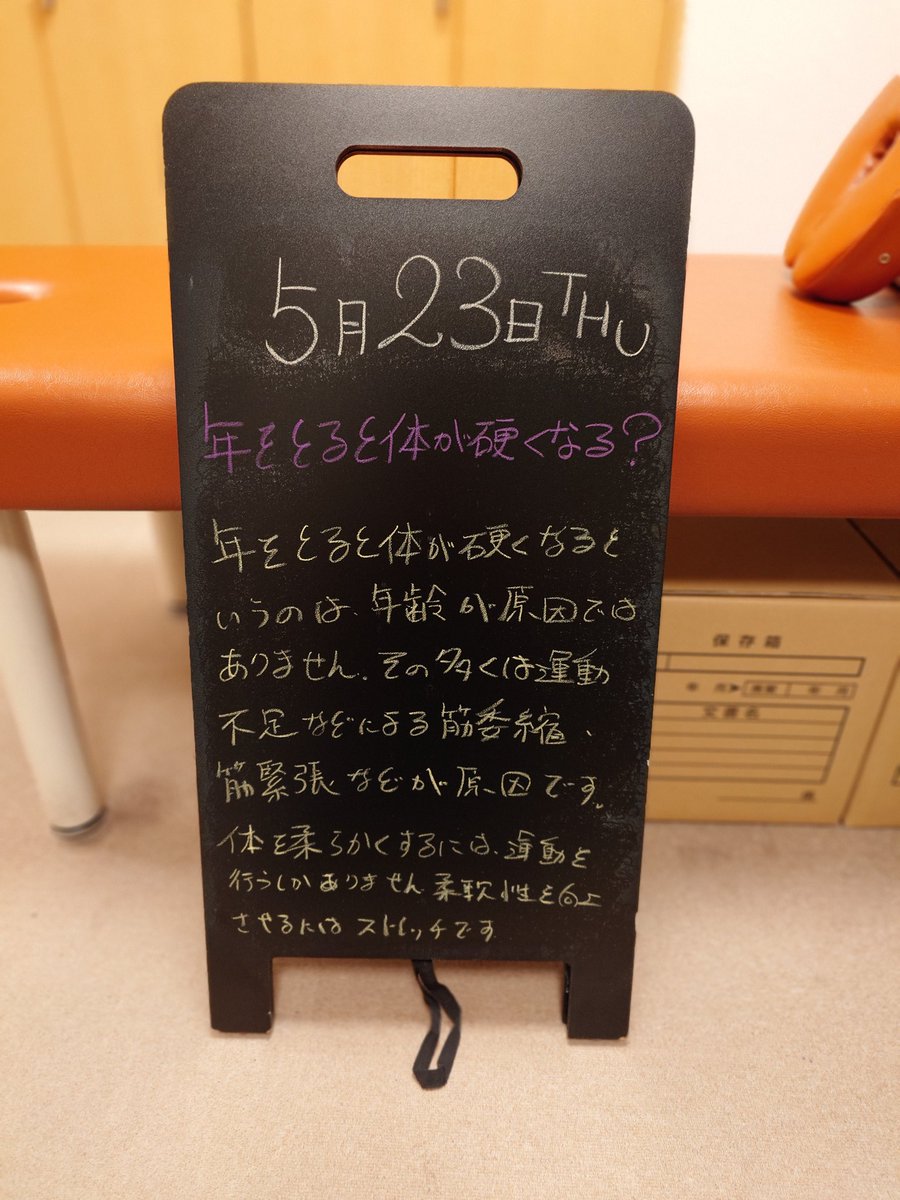 5月23日THU
年をとると体が硬くなる?
年をとると体が硬くなると
いうのは、年齢が原因では
ありません。その多くは運動
不足などによる筋委縮、
筋緊張などが原因です。
体を柔らかくするには、運動を
行うしかありません。柔軟性を向上
させるにはストレッチです
保存箱
文書名